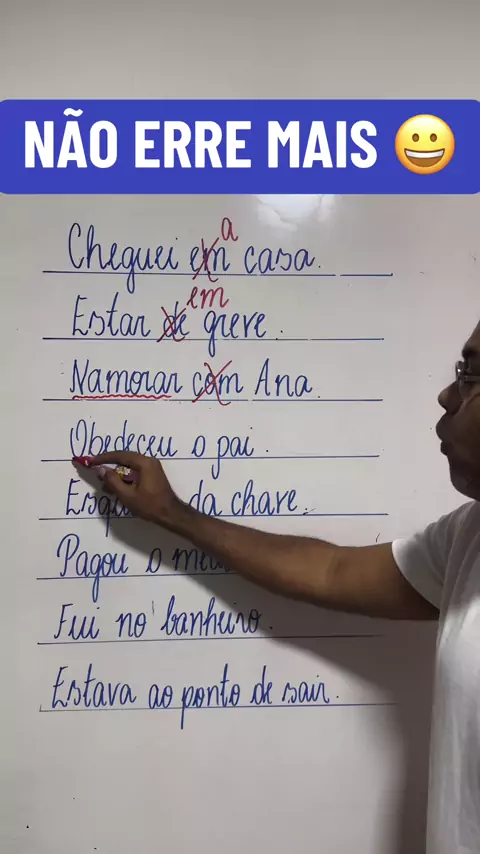 NÃO ERRE MAIS 😀
a
Cheguei em casa.
em
Estar de greve.
Namorar com Ana.
Obedeceu o pai.
da chave.
Pagou o
Fui no banheiro.
Estava ao ponto de sair.